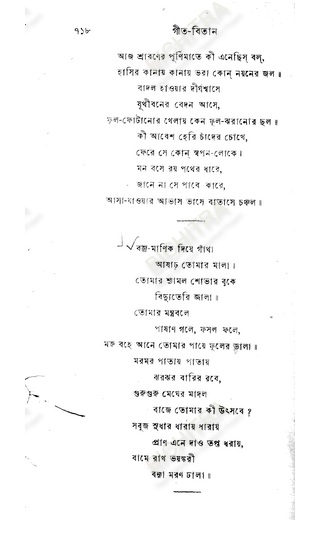 ৭১৮
গীত-বিতান
আজ শ্রাবণের পূর্ণিমাতে কী এনেছিস্ বল্,
হাসির কানায় কানায় ভরা কোন্ নয়নের জল॥
বাদল হাওয়ার দীর্ঘশ্বাসে
যূথীবনের বেদন আসে,
ফুল-ফোটানোর খেলায় কেন ফুল-ঝরানোর ছল॥
কী আবেশ হেরি চাঁদের চোখে,
ফেরে সে কোন্ স্বপন-লোকে।
মন বসে রয় পথের ধারে,
জানে না সে পাবে কারে,
আসা-যাওয়ার আভাস ভাসে বাতাসে চঞ্চল॥
বজ্র-মাণিক দিয়ে গাঁথা
আষাঢ় তোমার মালা।
তোমার শ্যামল শোভার বুকে
বিদ্যুতেরি জ্বালা।
তোমার মন্ত্রবলে
পাষাণ গলে, ফসল ফলে,
মরু বহে আনে তোমার পায়ে ফুলের ডালা॥
মরমর পাতায় পাতায়
ঝরঝর বারির রবে,
গুরুগুরু মেঘের মাদল
বাজে তোমার কী উৎসবে?
সবুজ সুধার ধারায় ধারায়
প্রাণ এনে দাও তপ্ত ধরায়,
বামে রাখ ভয়ঙ্করী
বন্যা মরণ ঢালা॥